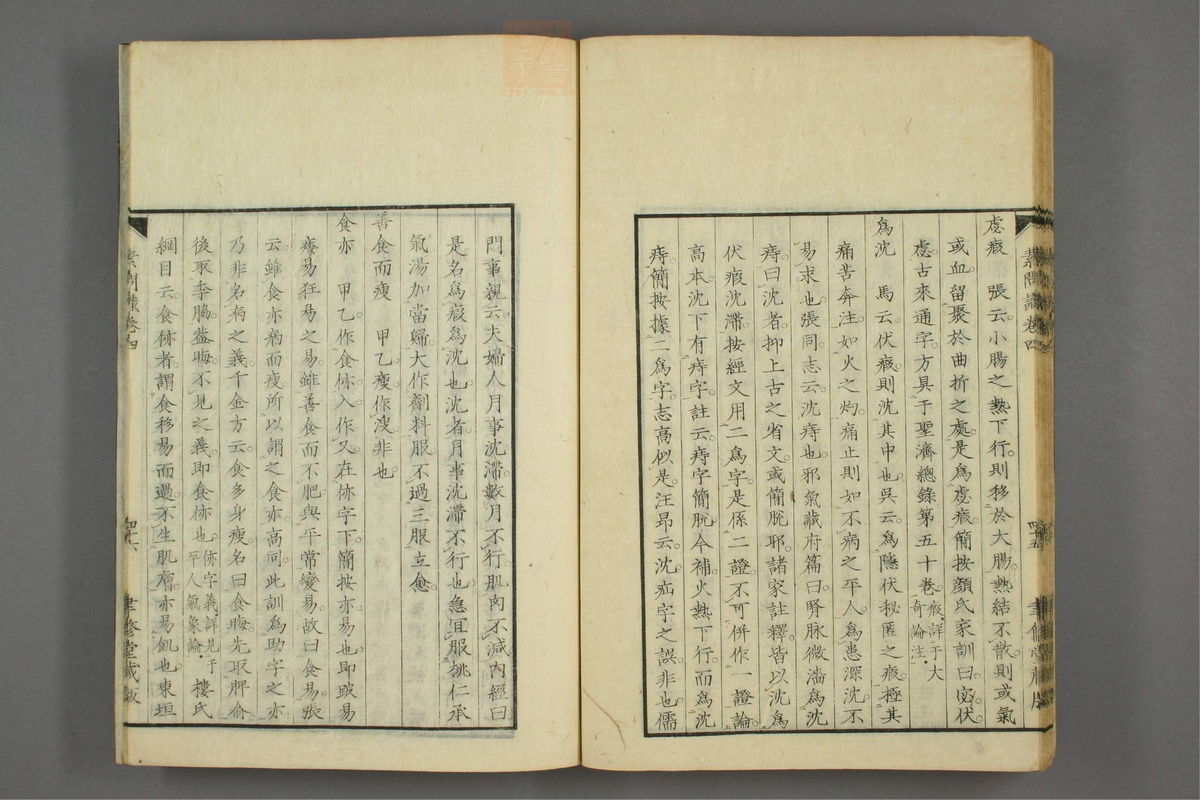 素問識卷四
虙瘕　張云小腸之熱下行則移於大腸熱結不散則或氣
或血留聚於曲折之處是為虙瘕簡按顏氏家訓曰宓伏
虙古來通字方具于聖濟總錄第五十卷瘕詳于大奇論注
為沈　馬云伏瘕則沈其中也吳云為隱伏秘匿之瘕極其
痛苦奔注如火之灼痛止則如不病之平人為患深沈不
易求也張同志云沈痔也邪氣藏府篇曰腎脉微濇為沈
痔曰沈者抑上古之省文或簡脫耶諸家註釋皆以沈為
伏瘕沈滯按經文用二為字是係二證不可併作一證論
高本沈下有痔字註云痔字簡脫今補火熱下行而為沈
痔簡按據二為字志高似是汪昂云沈疝字之誤非也儒
四十五
聿修堂藏版
門事親云夫婦人月事沈滯數月不行肌肉不減內經曰
是名為瘕為沈也沈者月事沈滯不行也急宜服桃仁承
氣湯加當歸大作劑料服不過三服立愈
善食而瘦　甲乙瘦作溲非也
食亦　甲乙作食㑊入作又在㑊字下簡按亦易也即跛易
痿易狂易之易雖善食而不肥與平常變易故曰食易張
云雖食亦病而瘦所以謂之食亦高同此訓為助字之亦
乃非名病之義千金方云食多身瘦名曰食晦先取脾俞
後取季脇葢晦不見之義即食㑊也㑊字義詳見于平人氣象論樓氏
綱目云食㑊者謂食移易而過不生肌膚亦易飢也東垣
素問識卷四
四十六
聿修堂藏版